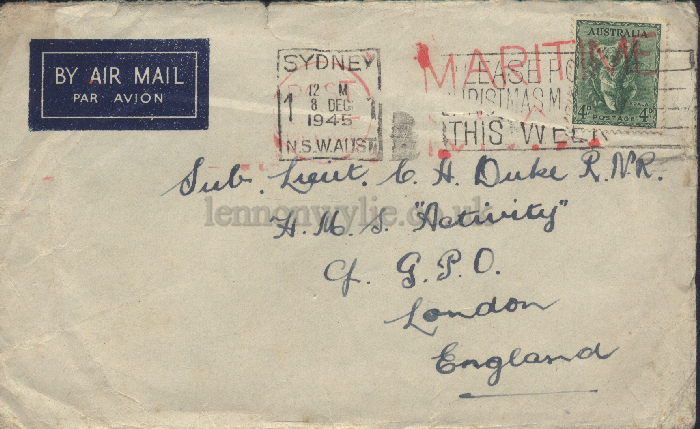 BY AIR MAIL
PAR AVION
SYDNEY
12 M
8 DEC
1945
N.S.W. AUST
1 1
MARITIME
POST
THIS WEEK
AUSTRALIA
4D 4D
POSTAGE
Sub. Lieut. C. H. Duke R.N.R.
lennonwylie.co.uk
H.M.S. "Activity"
c/- G.P.O.
London
England